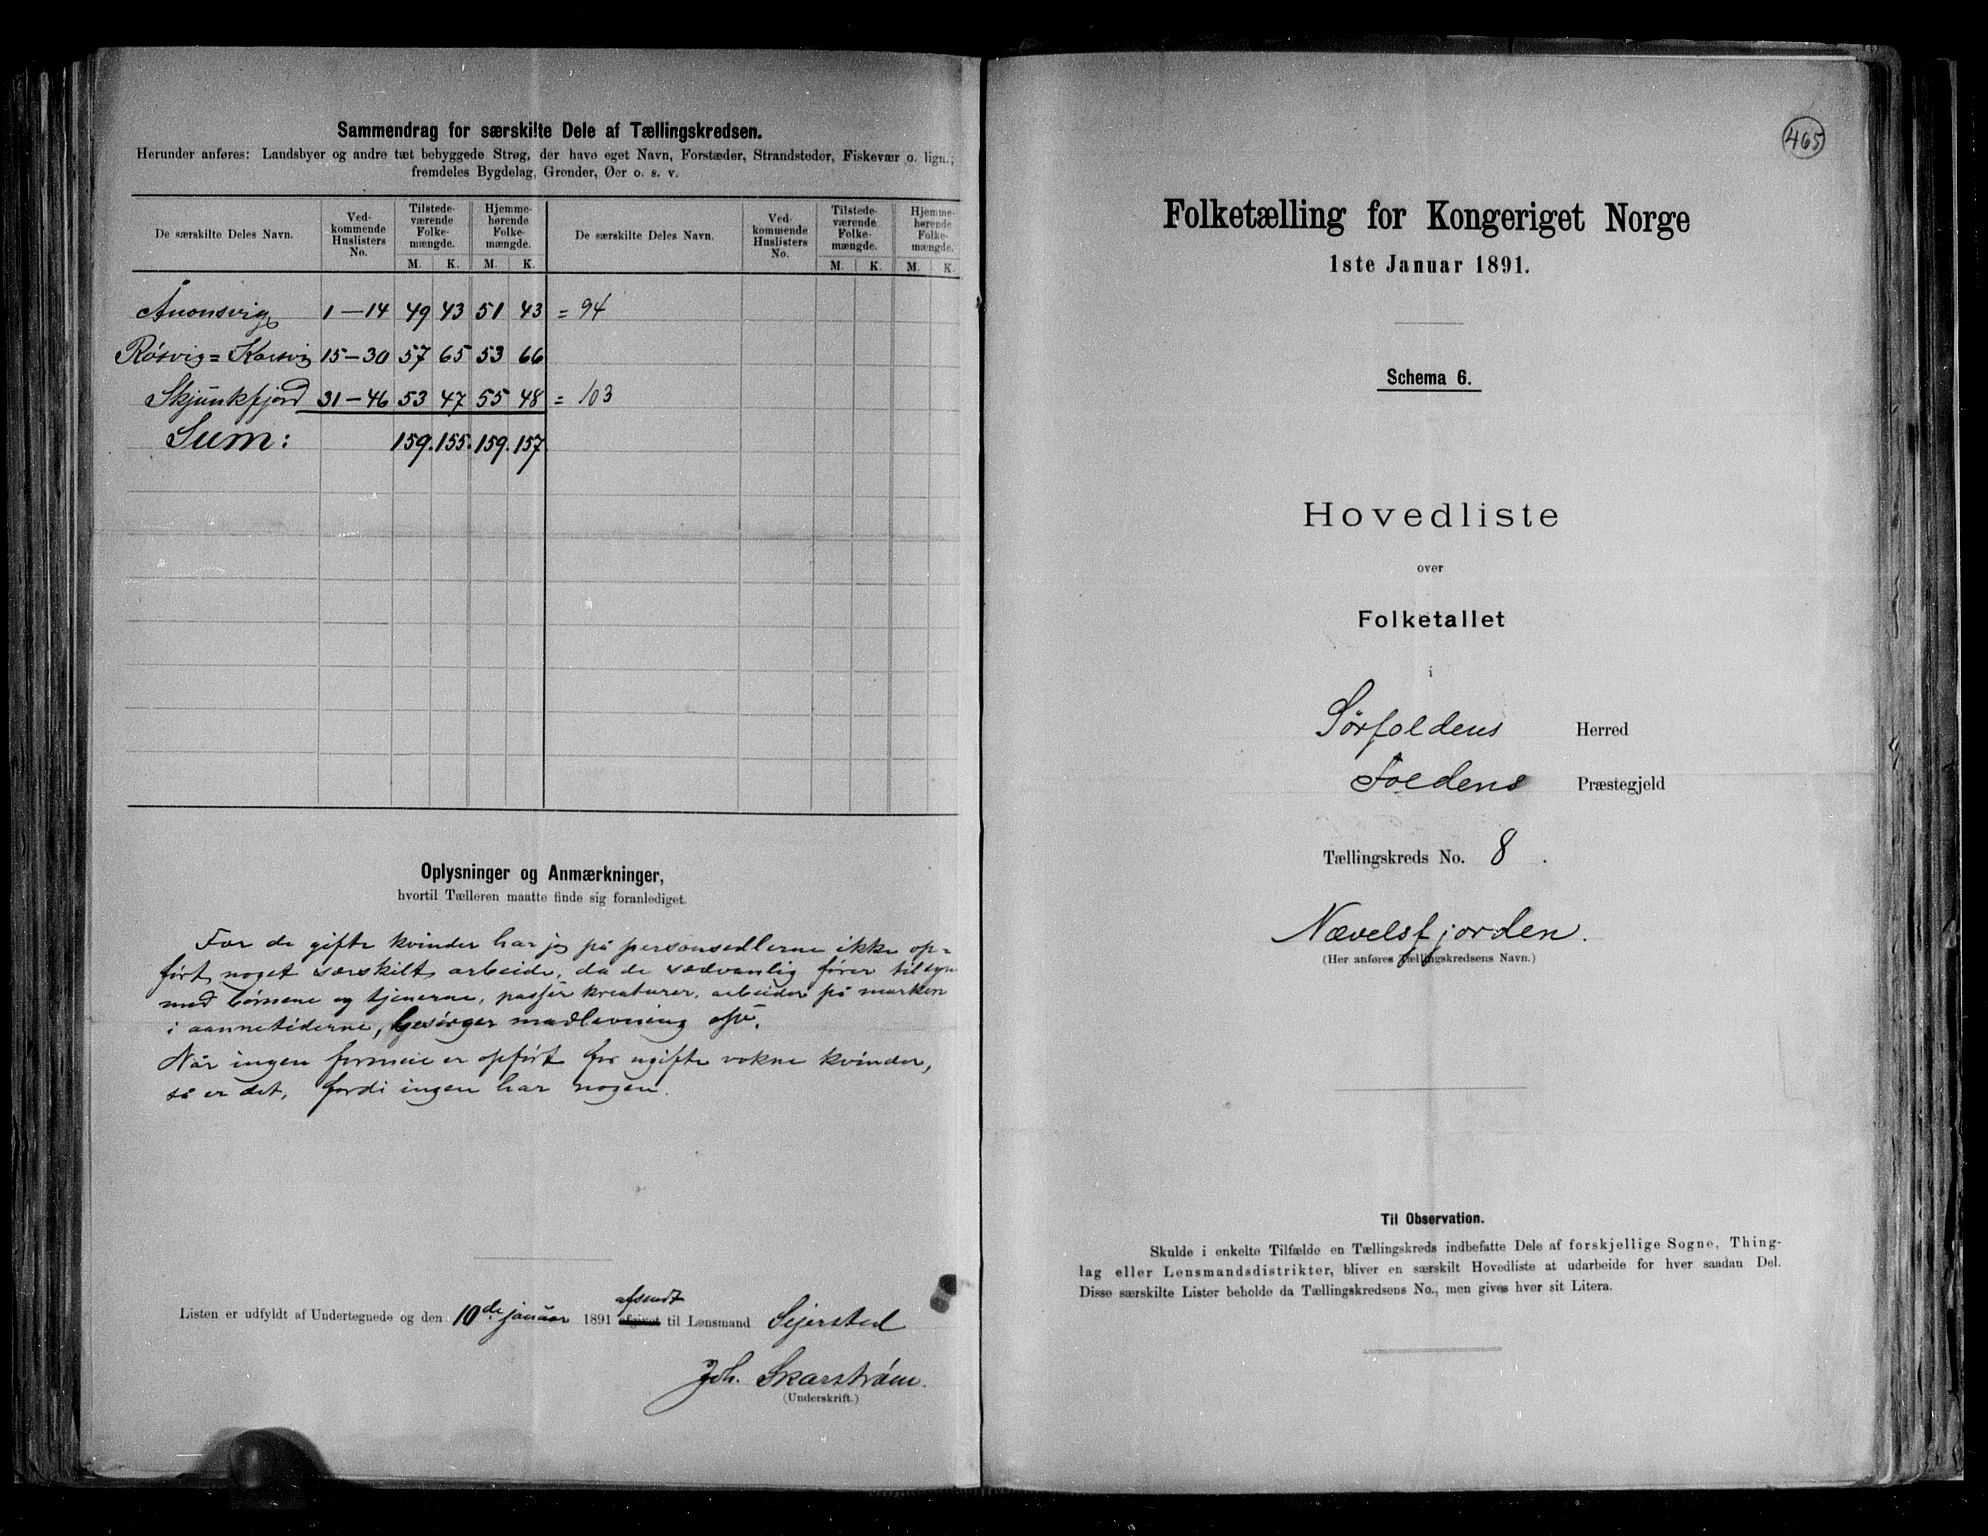 Sammendrag for særskilte Dele af Tællingskredsen.
Herunder anføres: Landsbyer og andre tæt bebyggede Strøg, der have eget Navn, Forstæder, Strandsteder, Fiskevær o. lign.;
fremdeles Bygdelag, Grender, Øer o. s. v.
De særskilte Deles Navn. Ved-kommende Huslisters No. Tilstede-værende Folke-mængde. Hjemme-hørende Folke-mængde. De særskilte Deles Navn. Ved-kommende Huslisters No. Tilstede-værende Folke-mængde. Hjemme-hørende Folke-mængde.
M. K. M. K. M. K. M. K.
Ånonsvig 1–14 49 43 51 43 = 94
Røsvig = Korsvig 15–30 57 65 53 66
Skjunkfjord 31–46 53 47 55 48 = 103
Sum: 159. 155. 159. 157.
Oplysninger og Anmærkninger,
hvortil Tælleren maatte finde sig foranlediget.
For de gifte kvinder har jeg på personsedlerne ikke op-
ført noget særskilt arbeide, da de sædvanlig fører tilsyn
med børnene og tjenerne, passer kreaturer, arbeider på marken
i aannetiderne, besørger madlavning osv.
Når ingen formue er opført for ugifte voksne kvinder,
så er det, fordi ingen har nogen.
afsendt
Listen er udfyldt af Undertegnede og den 10de januar 1891 afgivet til Lensmand Sejersted
Joh. Skarstrøm.
(Underskrift.)
465
Folketælling for Kongeriget Norge
1ste Januar 1891.
Schema 6.
Hovedliste
over
Folketallet
i
Sørfoldens Herred
Foldens Præstegjeld
Tællingskreds No. 8.
Nævelsfjorden.
(Her anføres Tællingskredsens Navn.)
Til Observation.
Skulde i enkelte Tilfælde en Tællingskreds indbefatte Dele af forskjellige Sogne, Thing-
lag eller Lensmandsdistrikter, bliver en særskilt Hovedliste at udarbeide for hver saadan Del.
Disse særskilte Lister beholde da Tællingskredsens No., men gives hver sit Litera.